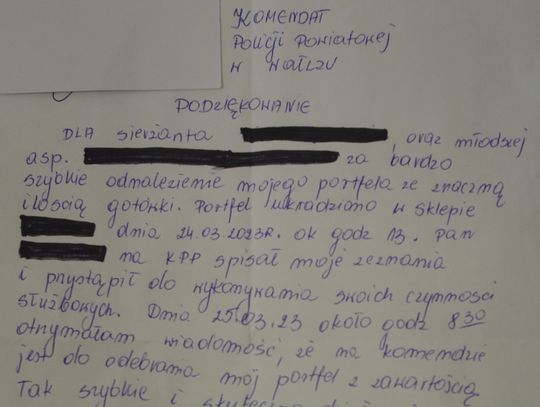 KOMENDAT
POLICJI POWIATOWEJ
W WAŁCZU
PODZIĘKOWANIE
DLA sierżanta , oraz młodszej
asp. za bardzo
szybkie odnalezienie mojego portfela ze znaczną
ilością gotówki. Portfel ukradziono w sklepie
dnia 24.03.2023R. ok godz 13. Pan
na KPP spisał moje zeznania
i przystąpił do wykonywania swoich czynności
służbowych. Dnia 25.03.23 około godz 8 30
otrzymałam wiadomość, że na komendzie
jest do odebrania mój portfel z zawartością.
Tak szybkie i